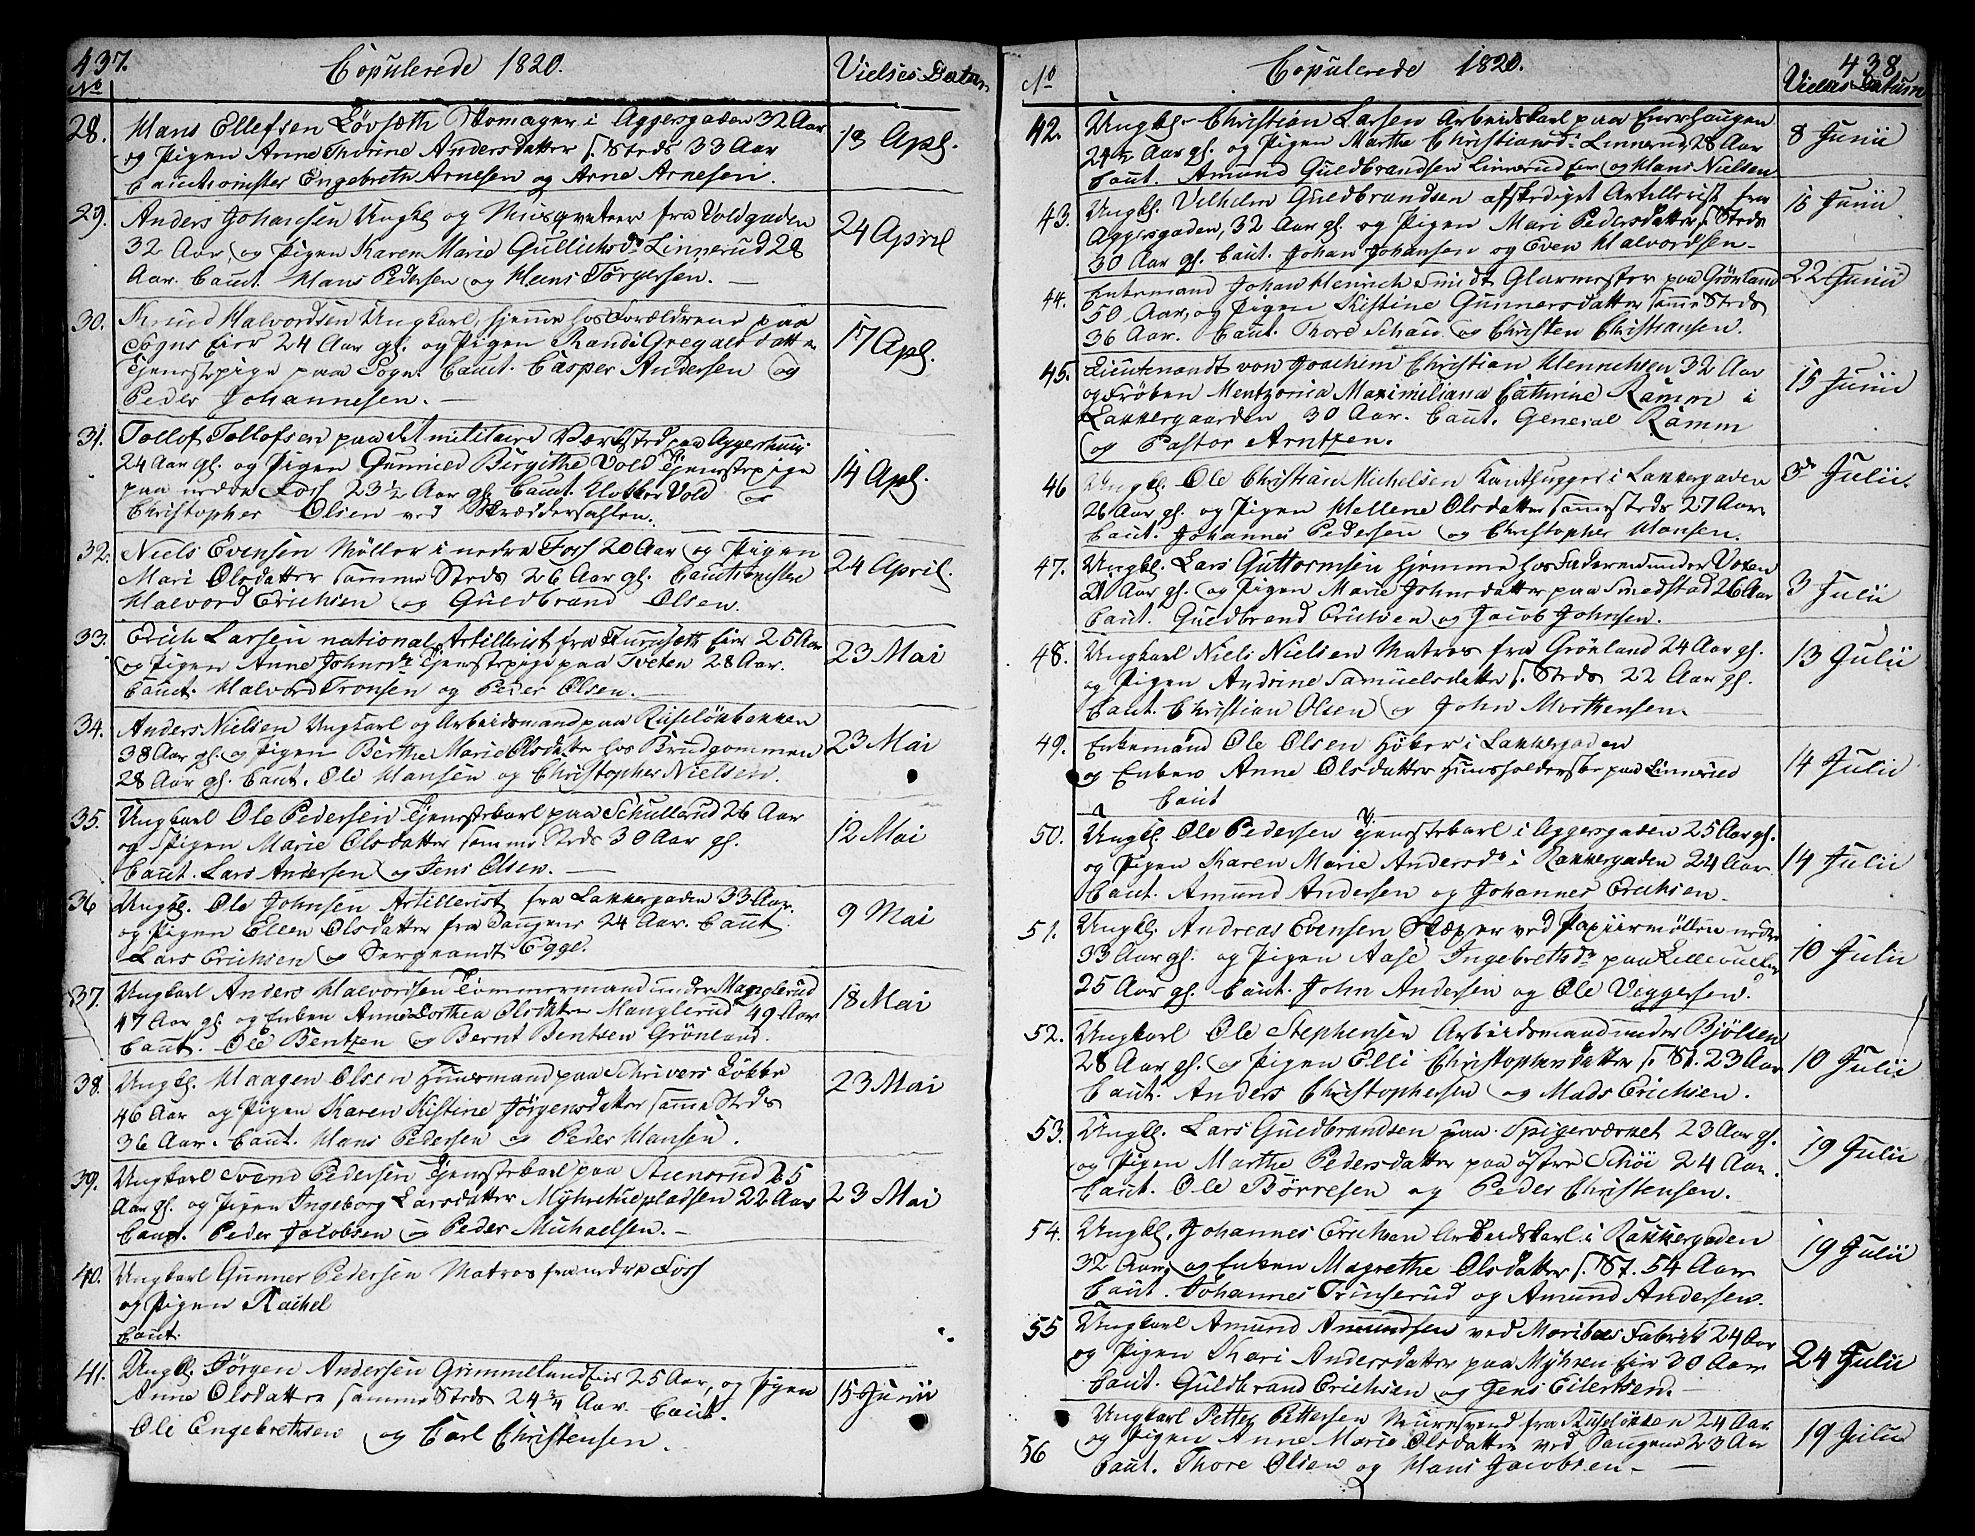 437.
Copulerede 1820.
Vielses Datum
No
28. Hans Ellefsen Lövsæth Skomager i Aggersgaden 32 Aar
og Pigen Anne Thorine Andersdatter s. Steds 33 Aar
Cautionister Engebreth Arnesen og Arne Arnesen.
13 Apl.
29. Anders Johansen Ungkl og Musqueteer fra Voldgaden
32 Aar og Pigen Karen Marie Gullichsdr Linnerud 28
Aar. Caut. Hans Pedersen og Hans Torgersen.
24 April
30. Knud Halvordsen Ungkarl, hjemme hos Forældrene paa
Sogns Eier 24 Aar gl. og Pigen Randi Gregars datter
Tjenestepige paa Sogn. Caut. Casper Andersen og
Peder Johannesen.
17 Apl.
31. Tollof Tollofsen paa det militaire Værksted paa Aggershuus
24 Aar gl. og Pigen Gunnild Birgithe Vold Tjenestepige
paa nedre Foss 23 1/2 Aar gl. Caut. Klokker Vold og
Christopher Olsen ved Skræddersaften.
14 Apl.
32. Niels Evensen Möller i nedre Foss 20 Aar og Pigen
Mari Olsdatter samme Steds 26 Aar gl. Cautionister
Halvord Erichsen og Guldbrand Olsen.
24 April
33. Erich Larsen national Artillerist fra Furusæth Eier 25 Aar
og Pigen Anne Johnsdr Tjenestepige paa Tveten 28 Aar.
Caut. Halvord Tronsen og Peder Olsen.
23 Mai
34. Anders Nielsen Ungkarl og Arbeidsmand paa Ruselökbakken
38 Aar gl. og Pigen Berthe Marie Olsdatter hos Brudgommen
28 Aar gl. Caut. Ole Hansen og Christopher Nielsen.
23 Mai
35. Ungkarl Ole Pedersen Tjenestekarl paa Schullerud 26 Aar
og Pigen Marie Olsdatter samme Steds 30 Aar gl.
Caut. Lars Andersen og Jens Olsen.
12 Mai
36 Ungkl. Ole Johnsen Artillerist fra Lakkergaden 33 Aar.
og Pigen Ellen Olsdatter fra Saugene 24 Aar. Caut
Lars Erichsen og Sergeandt Egge.
9 Mai
37. Ungkarl Anders Halvorsen Tömmermand under Manglerud
47 Aar gl. og Enken Anne Dorthea Olsdatter Manglerud 49 Aar
Caut. Ole Bentzen og Bernt Bentsen Grönland.
18 Mai
38. Ungkl. Haagen Olsen Huusmand paa Schrivers Løkke
46 Aar og Pigen Karen Kistine Jörgensdatter samme Steds
36 Aar. Caut. Hans Pedersen og Peder Hansen.
23 Mai
39. Ungkarl Svend Pedersen Tjenestekarl paa Stensrud 25
Aar gl. og Pigen Ingeborg Larsdatter Myhrehuepladsen 22 Aar
Caut. Peder Jacobsen og Peder Michaelsen.
23 Mai
40. Ungkarl Gunner Pedersen Matros fra nedre Foss
og Pigen Rachel
Caut.
41. Ungkl. Jörgen Andersen Grimmelund Eier 25 Aar, og Pigen
Anne Olsdatter samme Steds 24 3/4 Aar. Caut.
Ole Engebrethsen og Carl Christensen.
15 Junii
438
Copulerede 1820.
Vielses Datum
No
42. Ungkl. Christian Larsen Arbeidskarl paa Enerhaugen
24 1/2 Aar gl. og Pigen Marthe Christiansdr Linnerud 28 Aar
Caut. Amund Guldbrandsen Linnerud Eier og Hans Nielsen
8 Junii
43. Ungkl. Vilhelm Guldbrandsen afskediget Artillerist fra
Aggersgaden, 32 Aar gl. og Pigen Mari Pedersdatter s. Steds
30 Aar gl. Caut. Johan Johansen og Even Halvordsen
16 Junii
44. Enkemand Johan Henrich Smidt Glarmester paa Grönland
50 Aar, og Pigen Kistine Gunnersdatter samme Steds
36 Aar. Caut. Thore Schau og Christen Christiansen.
22 Junii
45. Lieutenandt von Joachim Christian Hennehsen 32 Aar
og Frøken Mentzonia Maximiliana Cathrine Ramm i
Lakkergaarden 30 Aar. Caut. General Ramm
og Pastor Arntzen.
15 Junii
46 Ungkl. Ole Christian Michelsen Kanthugger i Lakkergaden
26 Aar gl. og Pigen Hellene Olsdatter sammesteds 27 Aar
Caut. Johannes Pedersen og Christopher Hansen.
3de Julii.
47. Ungkl. Lars Guttormsen hjemme hos Faderen under Voxen
21 Aar gl. og Pigen Marie Johnsdatter paa Smedstad 26 Aar
Caut. Guldbrand Erichsen og Jacob Johnsen.
3 Julii
48. Ungkarl Niels Nielsen Matros fra Grönland 24 Aar gl.
og Pigen Andrine Samuelsdatter s. Steds 22 Aar gl.
Caut. Christian Olsen og John Morthensen.
13 Julii
49. Enkemand Ole Olsen Höker i Lakkergaden
og Enken Anne Olsdatter Huusholderske paa Linnerud
Caut
14 Julii
50. Ungkl. Ole Pedersen Tjenestekarl i Aggersgaden 25 Aar gl.
og Pigen Karen Marie Andersdr i Rakkergaden 24 Aar
Caut. Amund Andersen og Johannes Erichsen.
14 Julii
51. Ungkl. Andreas Evensen Skaper ved Papiirmøllen nedre
33 Aar gl. og Pigen Aase Ingebrethsdr paa Lillevacker
25 Aar gl. Caut. John Andersen og Ole Viggersen.
10 Julii
52. Ungkarl Ole Stephensen Arbeidsmand under Bjölsen
28 Aar gl. og Pigen Elli Christophersdatter s. St. 23 Aar
Caut. Anders Christophersen og Mads Erichsen.
10 Julii
53. Ungkl. Lars Guldbrandsen paa Spigerværket 23 Aar gl.
og Pigen Marthe Pedersdatter paa östre Schöi 24 Aar.
Caut. Ole Börresen og Peder Christensen.
19 Julii
54. Ungkl. Johannes Erichsen Arbeidskarl i Rakkergaden
32 Aar, og Enken Magrethe Olsdatter s. St. 54 Aar
Caut. Johannes Trulserud og Amund Andersen.
19 Julii
55 Ungkarl Amund Amundsen ved Moriboes Fabrik 24 Aar
og Pigen Mari Andersdatter paa Myhren Eier 30 Aar
Caut. Guldbrand Erichsen og Jens Eilertsen.
24 Julii
56 Ungkarl Petter Pettersen Muursvend fra Ruselökken 24 Aar
og Pigen Anne Marie Olsdatter ved Saugene 23 Aar
Caut. Thore Olsen og Hans Jacobsen
19 Julii